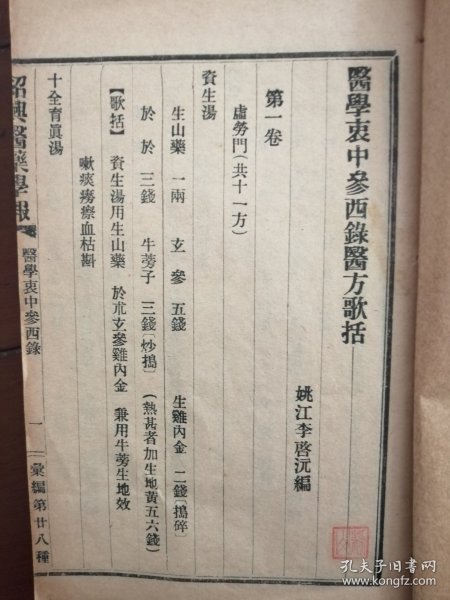 醫學衷中參西錄醫方歌括
姚江李啓沅編
第一卷
虛勞門(共十一方)
資生湯
生山藥 一兩 玄參 五錢 生雞內金 二錢〔搗碎〕
於於 三錢 牛蒡子 三錢〔炒搗〕 (熱甚者加生地黃五六錢)
【歌括】 資生湯用生山藥 於朮玄參雞內金 兼用牛蒡生地效
嗽痰癆瘵血枯斟
十全育眞湯
紹興醫藥學報 醫學衷中參西錄 一 彙編第廿八種
孔夫子旧书网
www.kongfz.com